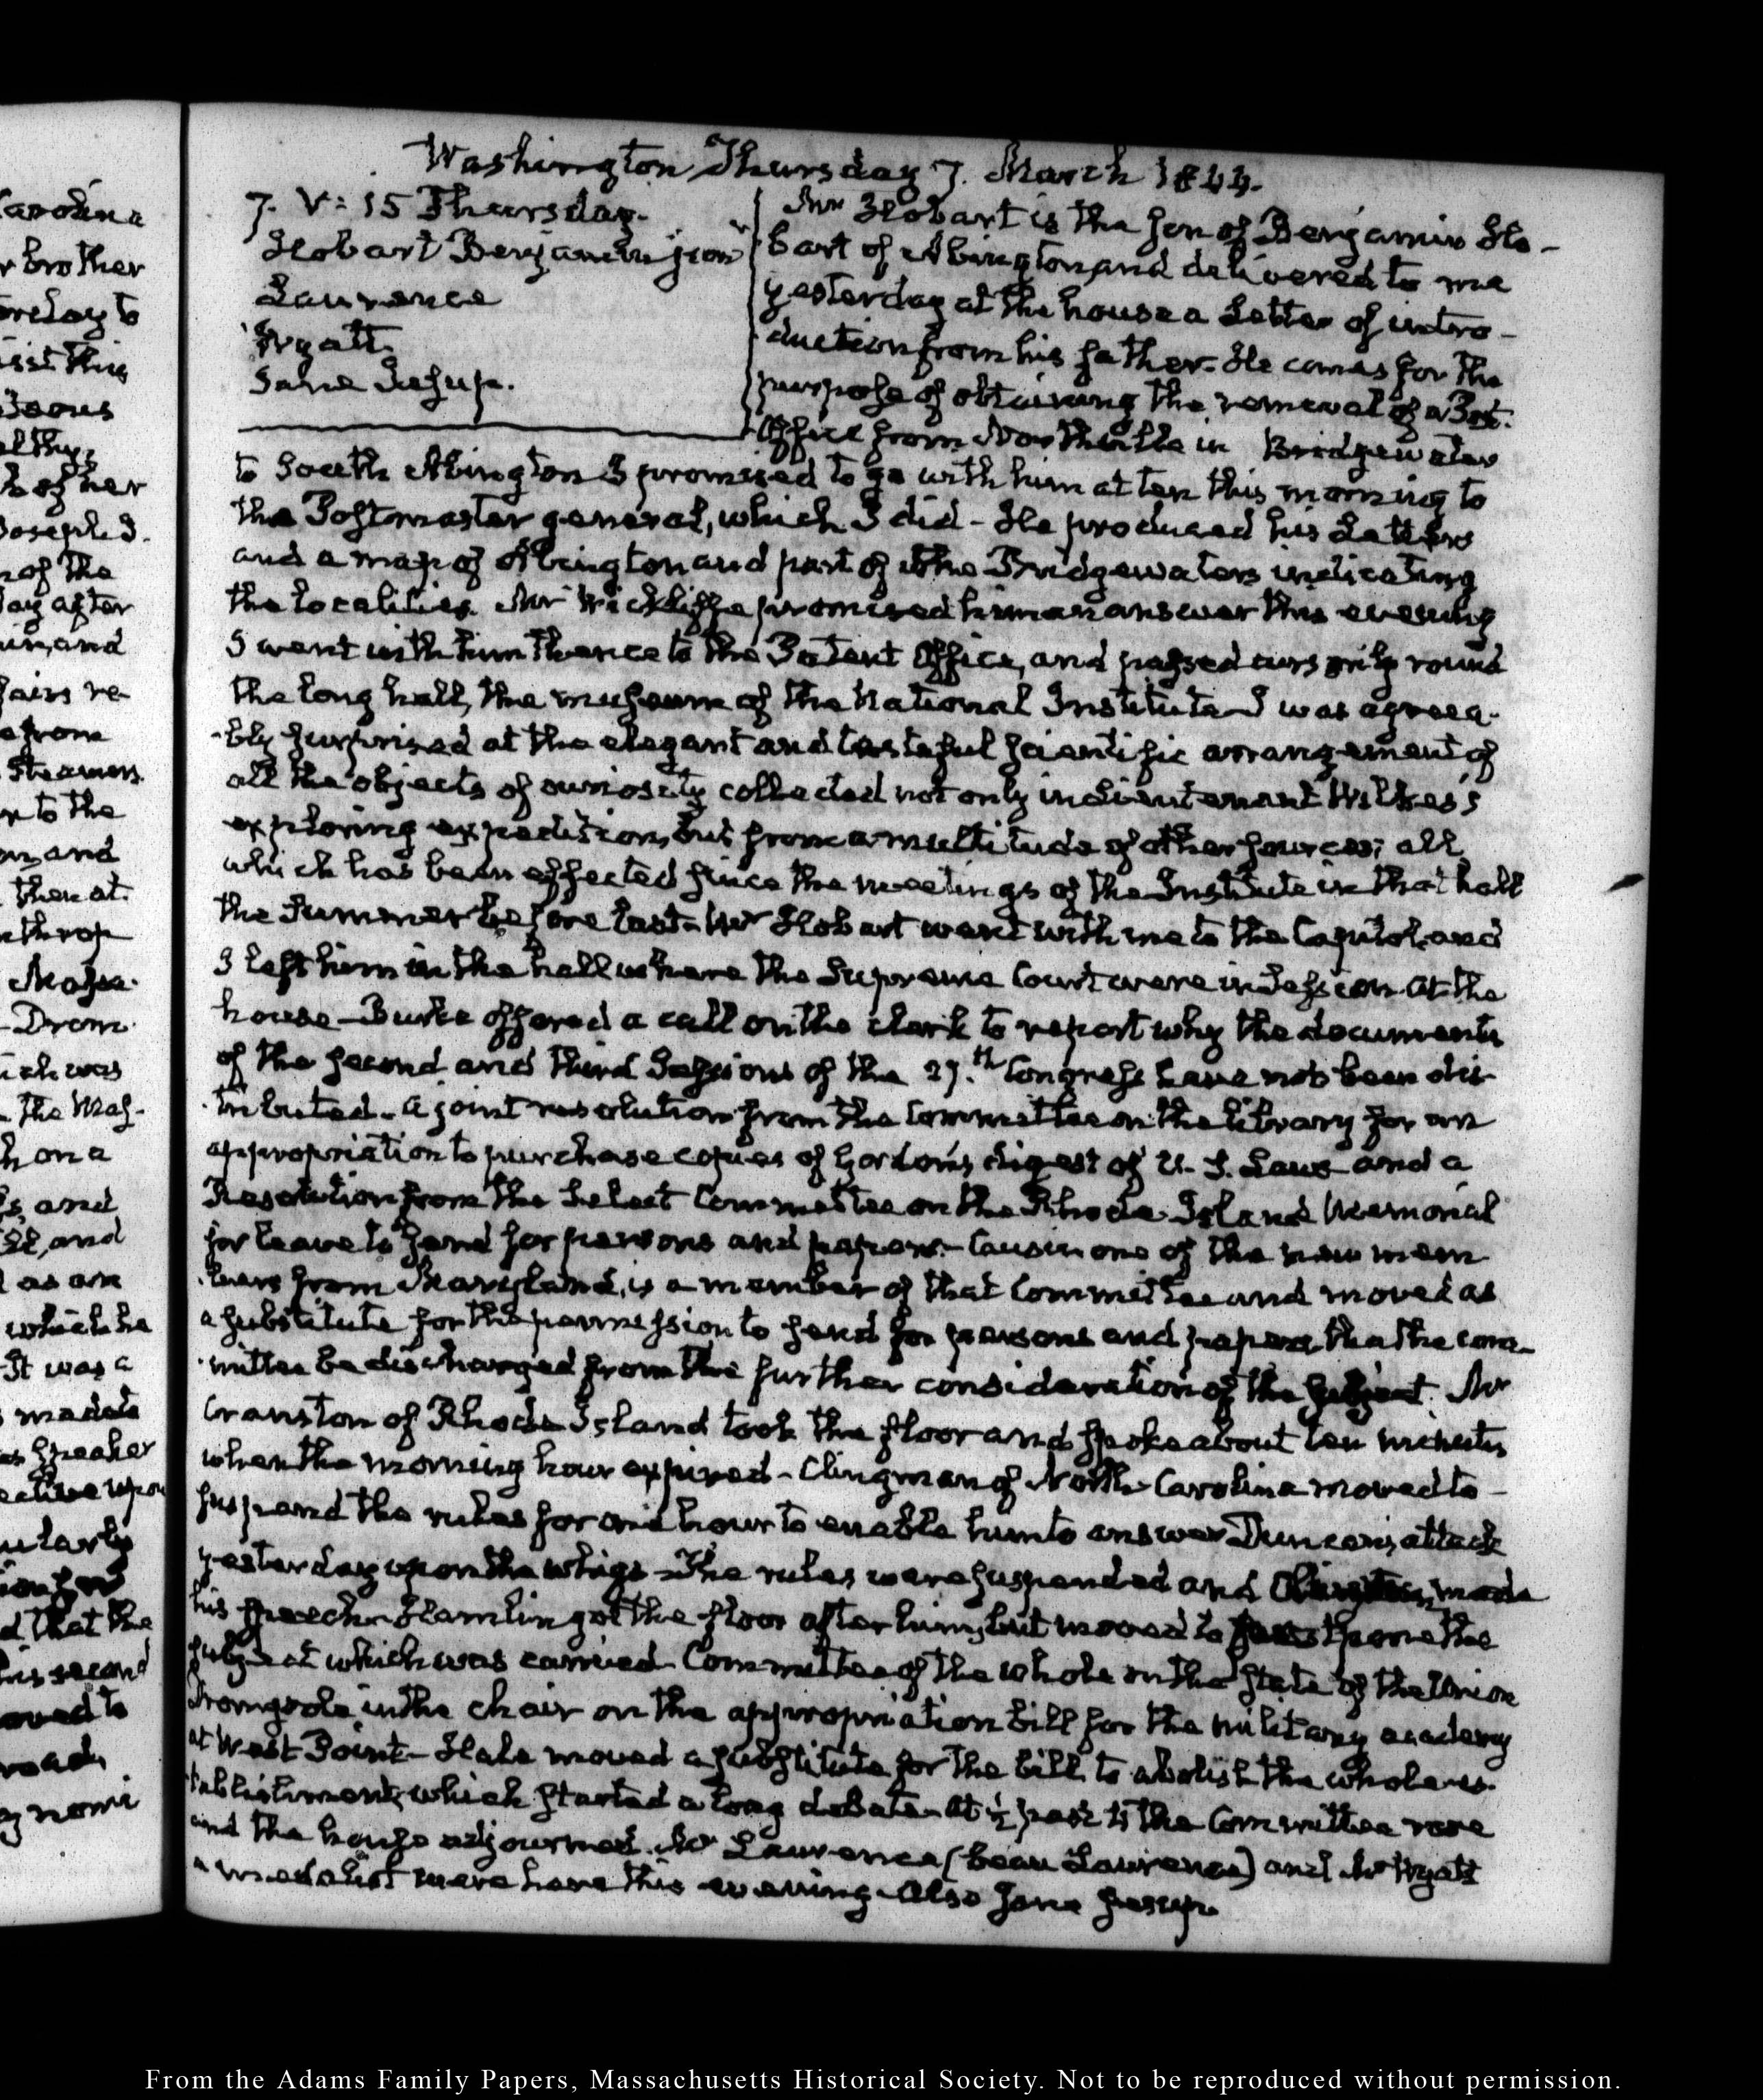 Washington Thursday 7. March 1844.
7. V: 15 Thursday.
Hobart Benjamin junr
Laurence
Wyatt.
Jane Jesup.
Mr Hobart is the son of Benjamin Ho-
bart of Abington, and delivered to me
yesterday at the house a Letter of intro-
duction from his father. He comes for the
purpose of obtaining the removal of a Post.
Office from Northville in Bridgewater
to South Abington I promised to go with him at ten this morning to
the Postmaster general, which I did - He produced his Letters
and a map of Abington and part of the Bridgewaters indicating
the localities. Mr Wickliffe promised him an answer this evening
I went with him thence to the Patent Office, and passed cursorily round
the long hall, the museum of the National Institute I was agreea-
bly surprised at the elegant and tasteful scientific arrangement of
all the objects of curiosity collected not only in Lieutenant Wilkes's
exploring expedition, but from a multitude of other sources; all
which has been effected since the meetings of the Institute in that hall
the Summer before last - Mr Hobart went with me to the Capitol, and
I left him in the hall where the Supreme Court were in Session. At the
house - Burke offered a call on the clerk to report why the documents
of the second and third Sessions of the 27.th Congress have not been dis-
tributed - A joint resolution from the Committee on the library for an
appropriation to purchase copies of Gordon's digest of U. S. Laws - and a
Resolution from the Select Committee on the Rhode-Island Memorial
for leave to send for persons and papers - Causin one of the new mem-
bers from Maryland, is a member of that Committee and moved as
a substitute for the permission to send for persons and papers, that the com-
mittee be discharged from the further consideration of the subject. Mr
Cranston of Rhode Island took the floor and spoke about ten minutes
when the morning hour expired - Clingman of North-Carolina moved to
suspend the rules for one hour to enable him to answer Duncan's attack
yesterday upon the whigs - The rules were suspended and Clingman made
his speech - Hamlin got the floor after him, but moved to postpone the
subject which was carried - Committee of the whole on the state of the Union
Dromgoole in the chair on the appropriation bill for the military academy
at West Point - Hale moved a substitute for the bill to abolish the whole es-
tablishment, which started a long debate - At ½ past 4 the Committee rose
and the house adjourned. Mr Laurence (beau Laurence) and Mr Wyatt
a medalist were here this evening - Also Jane Jesup.